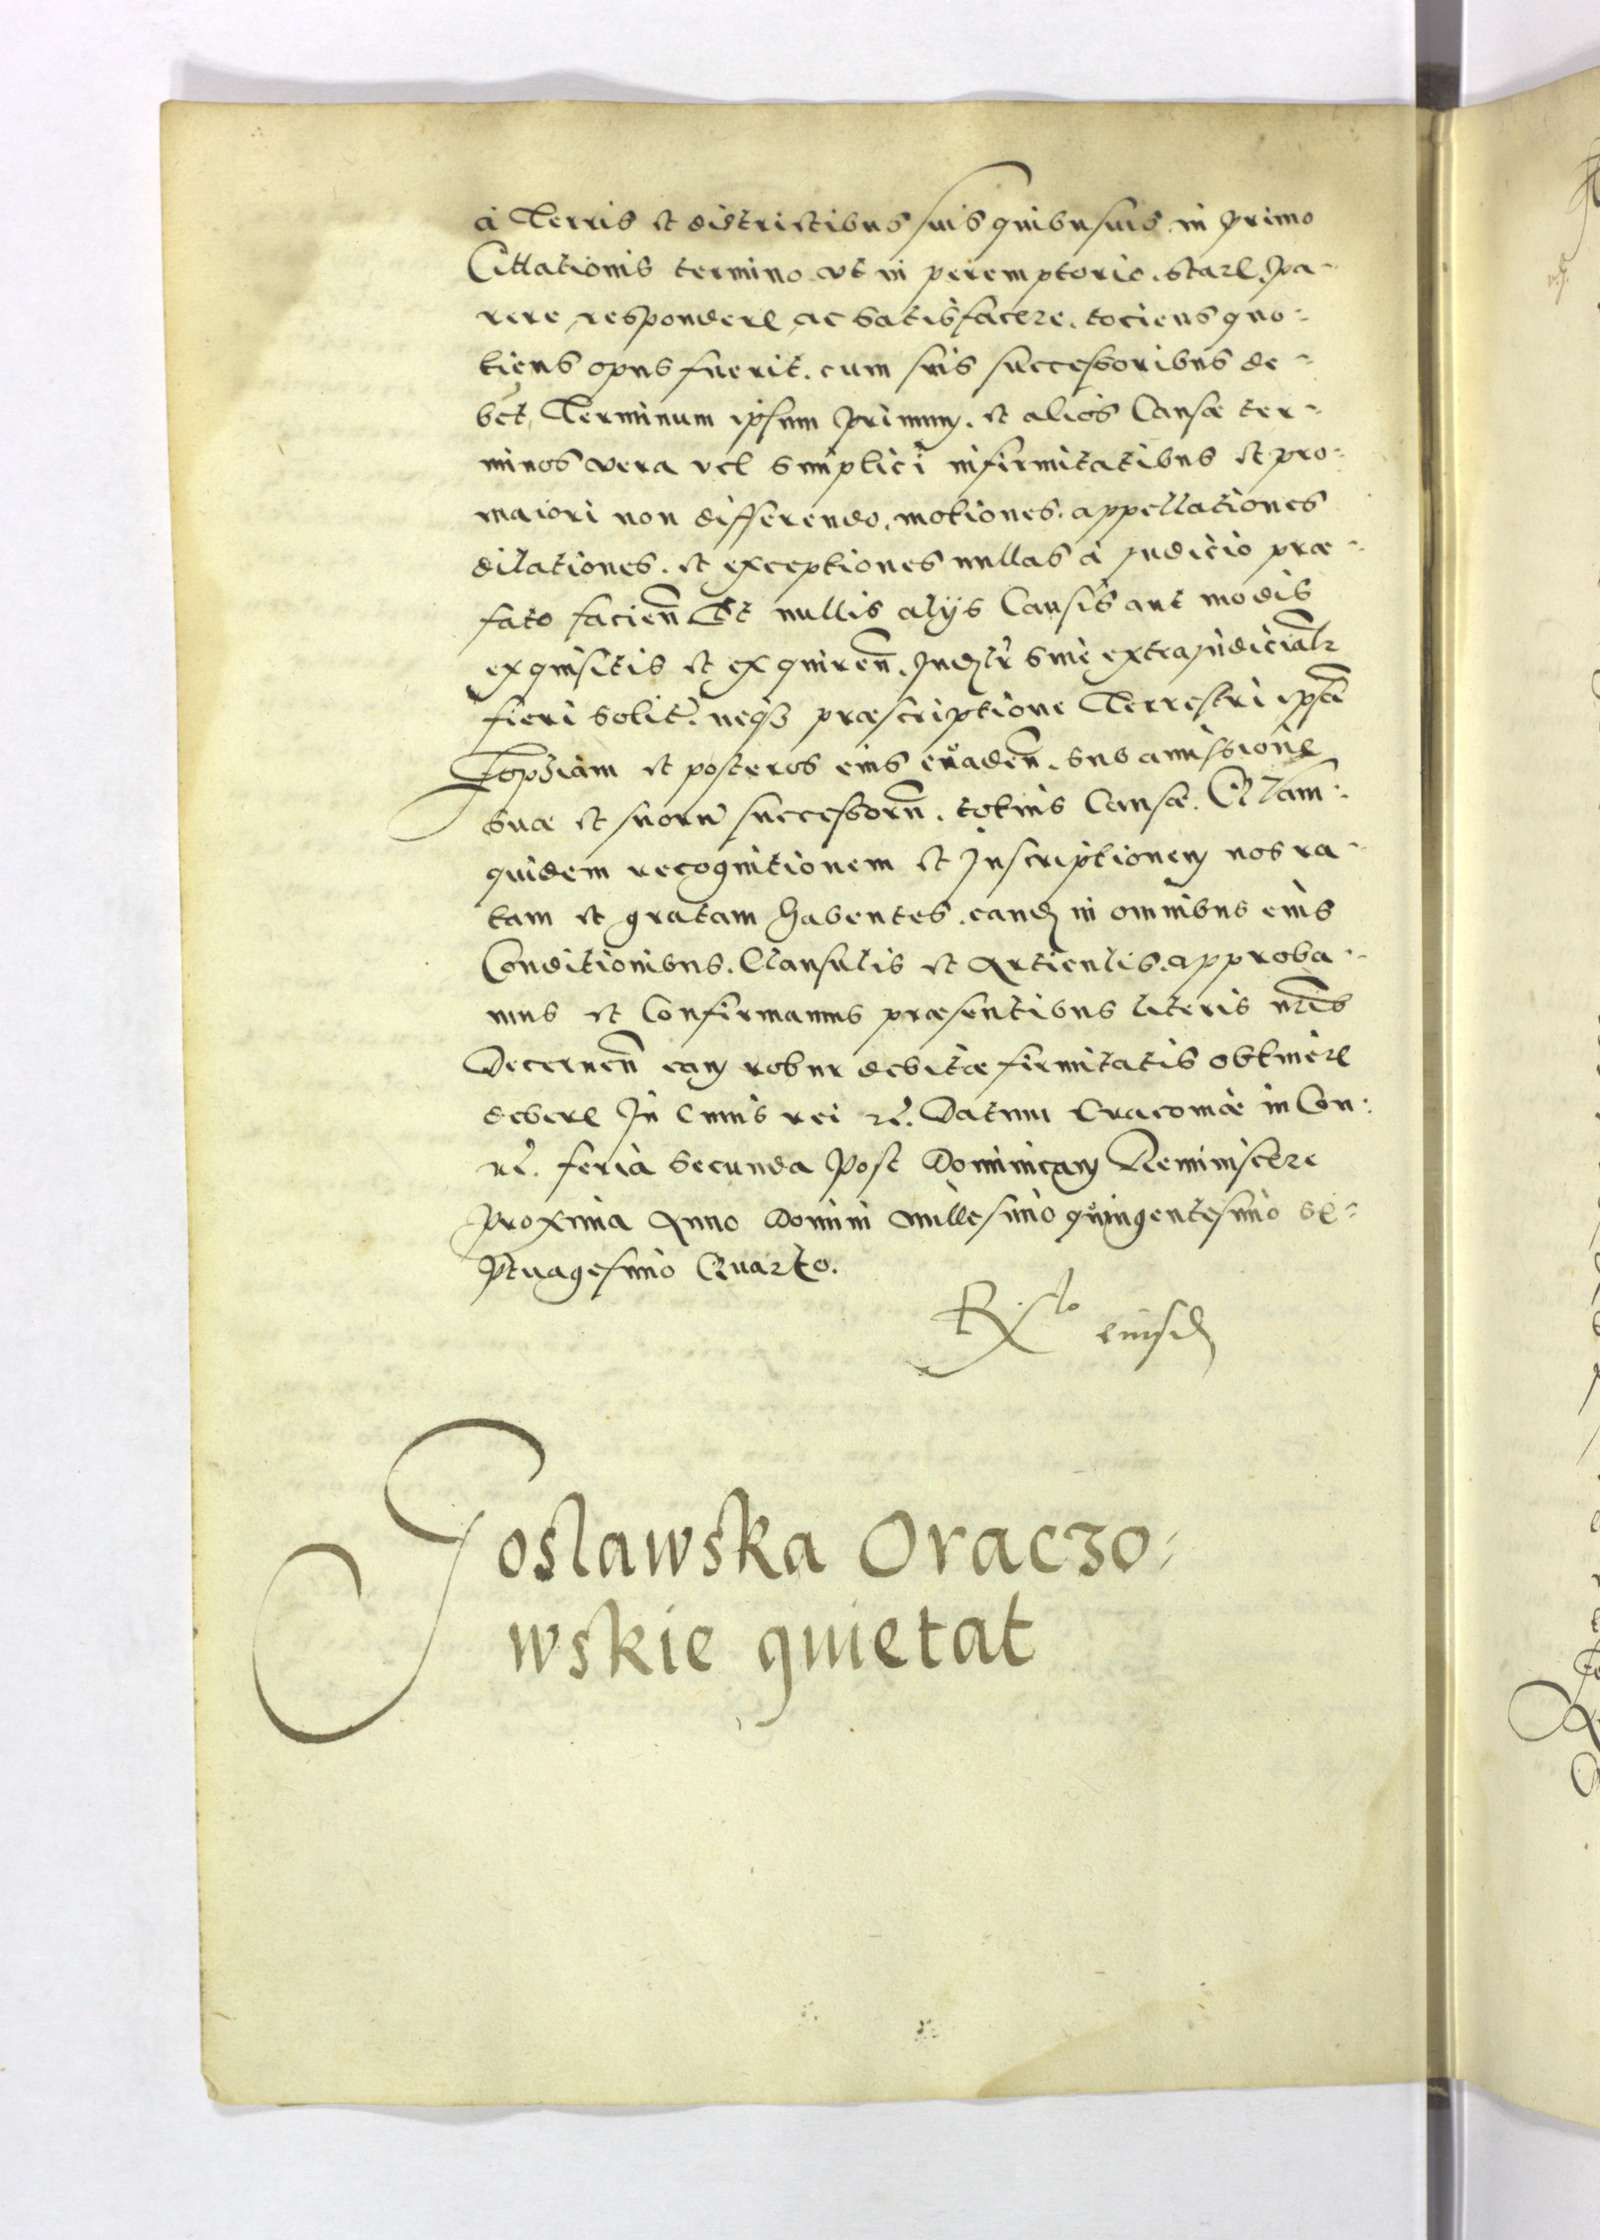 à Terris et districtibus suis quibusuis in primo
Citationis termino ut in peremptorio. stare, pa-
rere respondere ac satisfacere. tociens quo-
tiens opus fuerit. cum suis successoribus de-
bet, Terminum ipsum primum. et alios Causæ ter-
minos vera vel simplici infirmitatibus et pro
maiori non differendo, motiones. appellationes
dilationes. et exceptiones nullas à judicio præ-
fato facien̄ Et nullis alijs Causis aut modis
exquisitis et exquiren̄. sive extrajudicialr
fieri solit. neqȝ præscriptione Terrestri ipsā
et posteros eius evaden̄. sub amissione
suæ et suorū successorū. totius Causæ. Quam
quidem recognitionem et Inscriptionem nos ra-
tam et gratam habentes. eand in omnibus eius
Conditionibus. Clausulis et Articulis. approba-
mus et Confirmamus præsentibus literis nrīs
Decernen̄ eam robur debitæ firmitatis obtinere
debere In cuius rei rē. Datum Cracoviæ in Con:
nē. feria secunda Post Dominicam Reminiscere
proxima Anno Domini Millesimo quingentesimo se-
ptuagesimo Quarto.
eiusd
Joslawska Oraczo-
wskie quietat